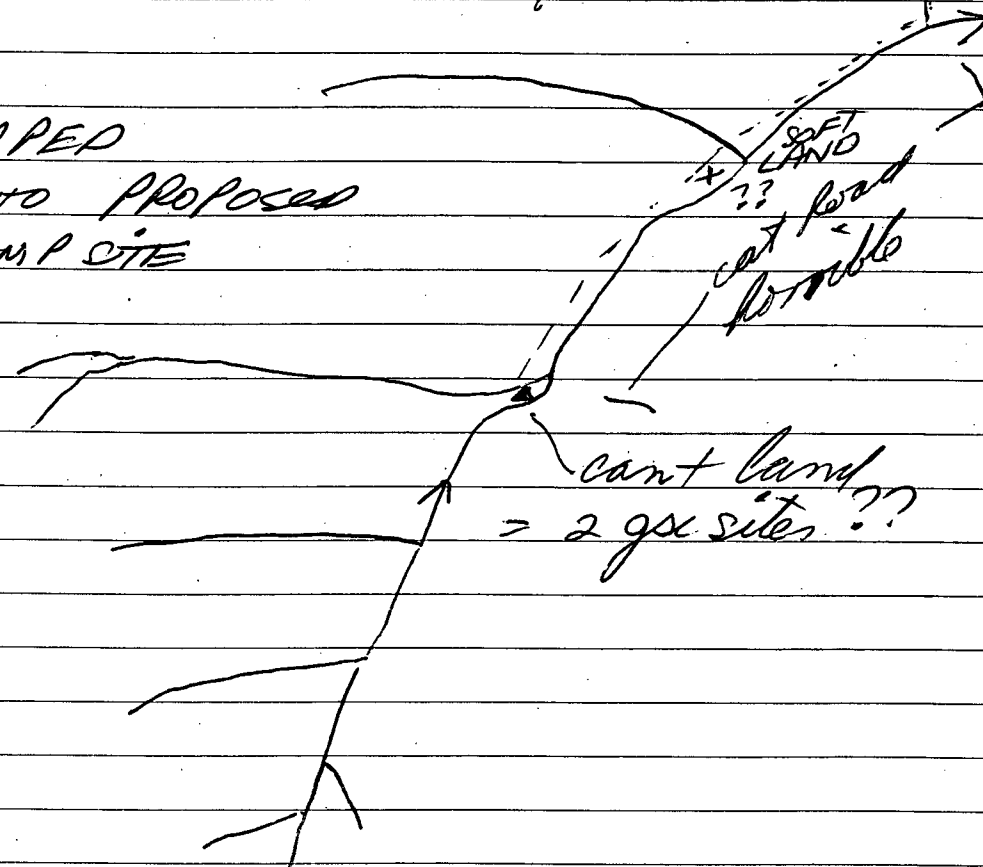 APED
TO PROPOSED
MP SITE
SOFT
LAND
??
cat Road
horrible
can't land
= 2 gsc sites ??